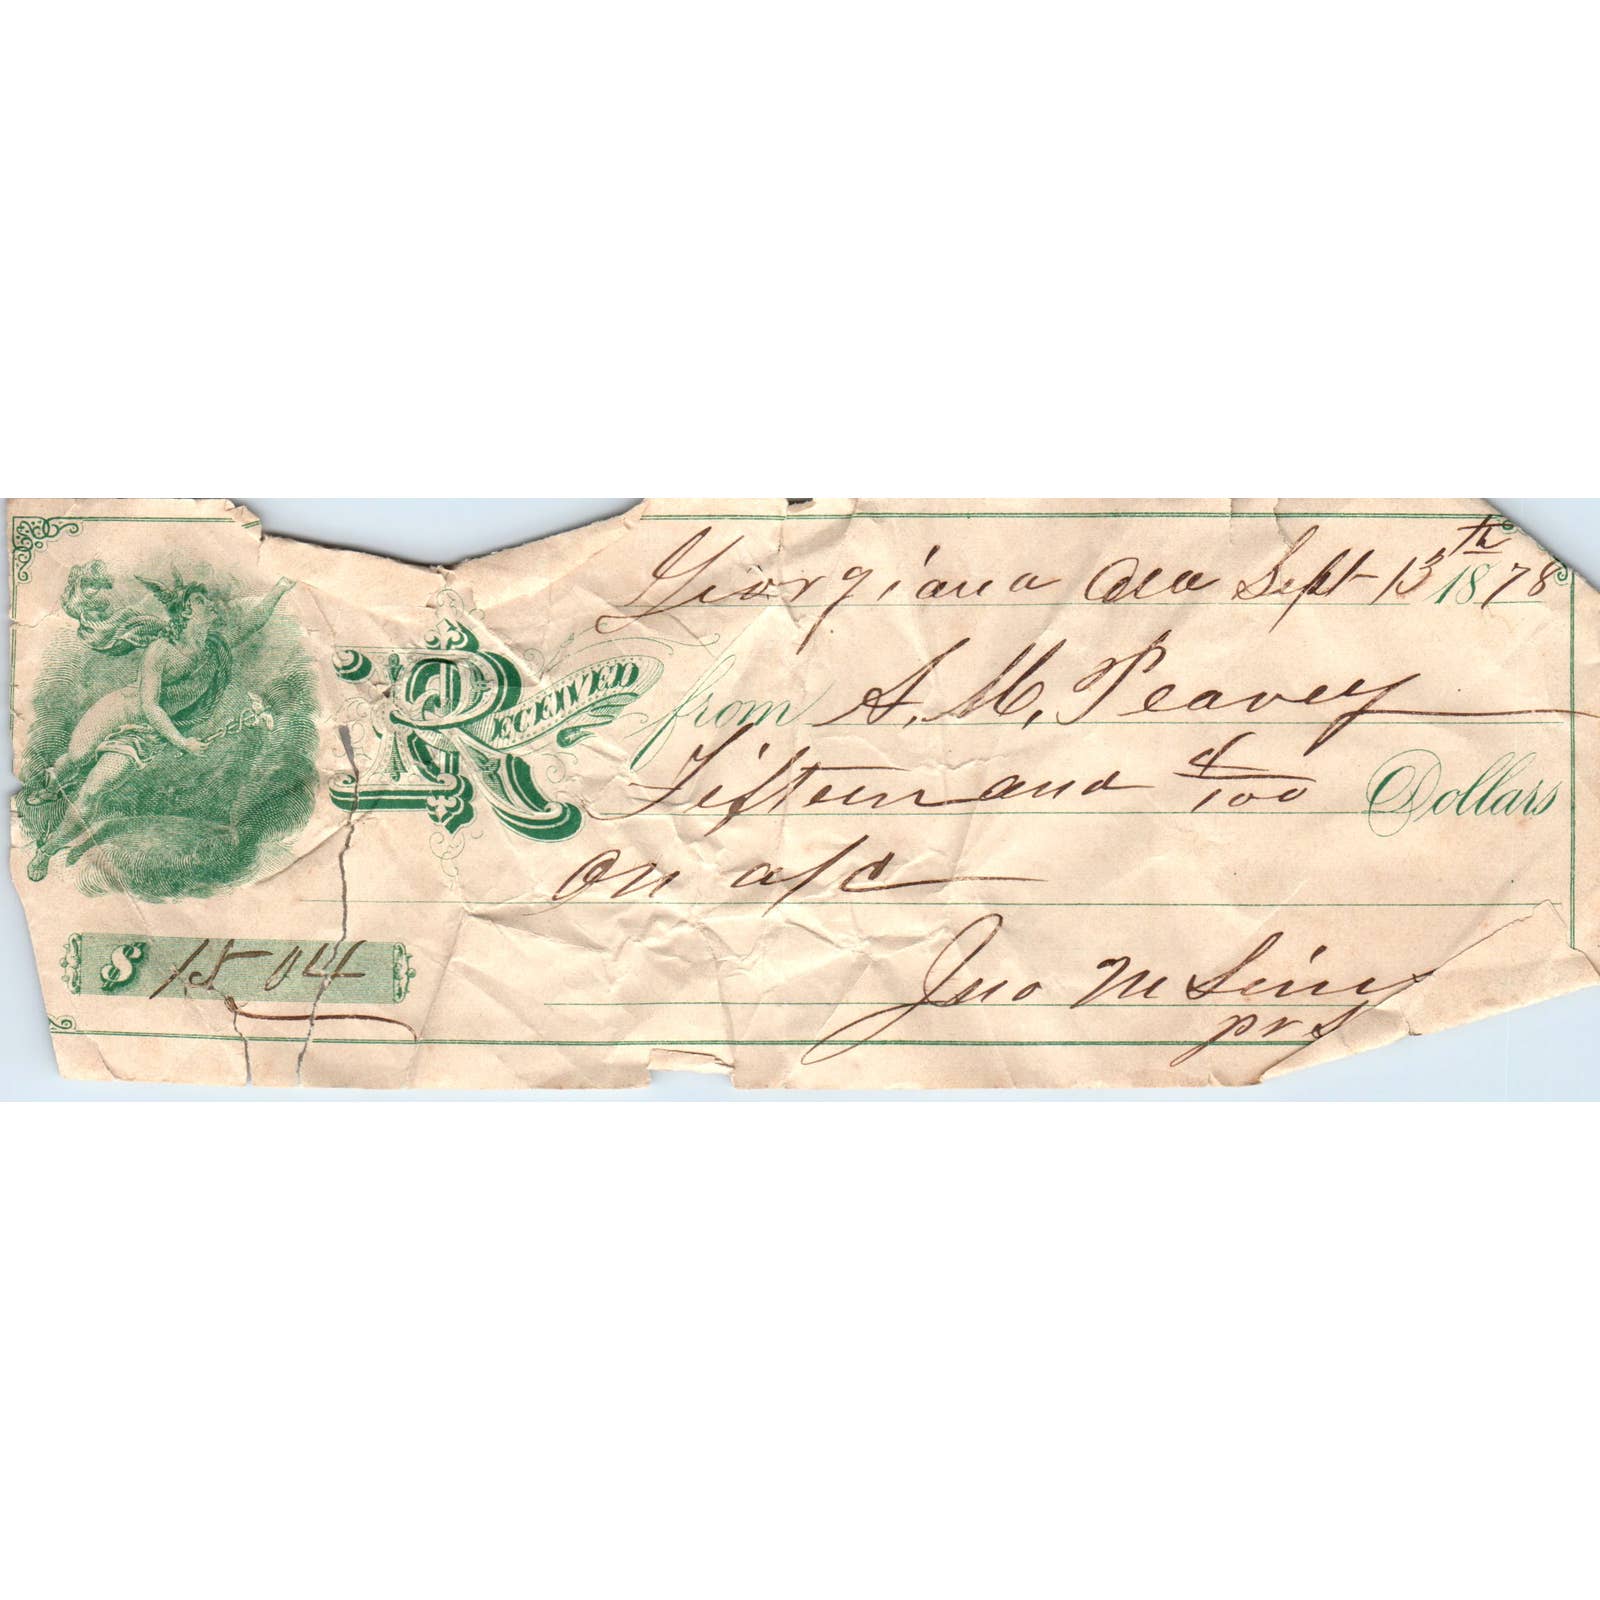 Georgiana Ala Sept 13th 1878
RECEIVED from A. M. Peavey
Fifteen and 4/100 Dollars
On a/c
$ 15 04
Jno M Sims
pr S